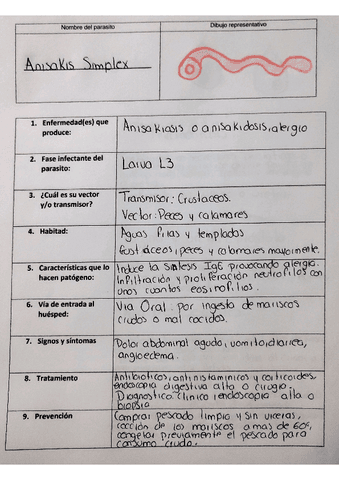 Nombre del parasito
Dibujo representativo
Anisakis Simplex
1. Enfermedad(es) que produce:
Anisakiasis o anisakidosis, alergia
2. Fase infectante del parasito:
Larva L3
3. ¿Cuál es su vector y/o transmisor?
Transmisor: Crustaceos.
Vector: Peces y calamares
4. Habitad:
Aguas frias y templados
Custáceos, peces y calamares mayormente.
5. Características que lo hacen patógeno:
Induce la sintesis IgE provocando alergia.
Infiltración y proliferación neutrofilos con
unos cuantos eosinofilos.
6. Vía de entrada al huésped:
Via Oral: por ingesta de mariscos
crudos o mal cocidos.
7. Signos y síntomas
Dolor abdominal agudo, vomito, diarrea,
angioedema.
8. Tratamiento
Antibioticos, antinistaminicos y corticoides,
endoscopia digestiva alta o cirugio.
Diagnostico clinico, endoscopia alta o
biopsia
9. Prevención
Comprar pescado limpio y sin viceras,
cocción de los mariscos a mas de 60º,
congelar previamente el pescado para
consumo crudo.